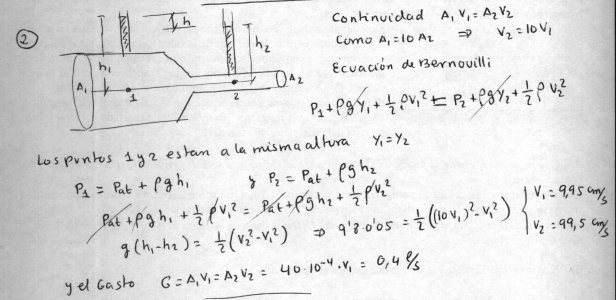 2
h
h₁
h₂
A₁
A₂
1
2
Continuidad A₁V₁=A₂V₂
Como A₁=10A₂ ⇒ V₂=10V₁
Ecuación de Bernouilli
P₁+ρgY₁+½ρV₁²=P₂+ρgY₂+½ρV₂²
Los puntos 1 y 2 estan a la misma altura Y₁=Y₂
P₁=Pat+ρgh₁ y P₂=Pat+ρgh₂
Pat+ρgh₁+½ρV₁²=Pat+ρgh₂+½ρV₂²
g(h₁-h₂)=½(V₂²-V₁²) ⇒ 9'8·0'05=½((10V₁)²-V₁²) { V₁=9,95 cm/s
V₂=99,5 cm/s
y el Gasto G=A₁V₁=A₂V₂=40·10⁻⁴·V₁=0,4 ℓ/s